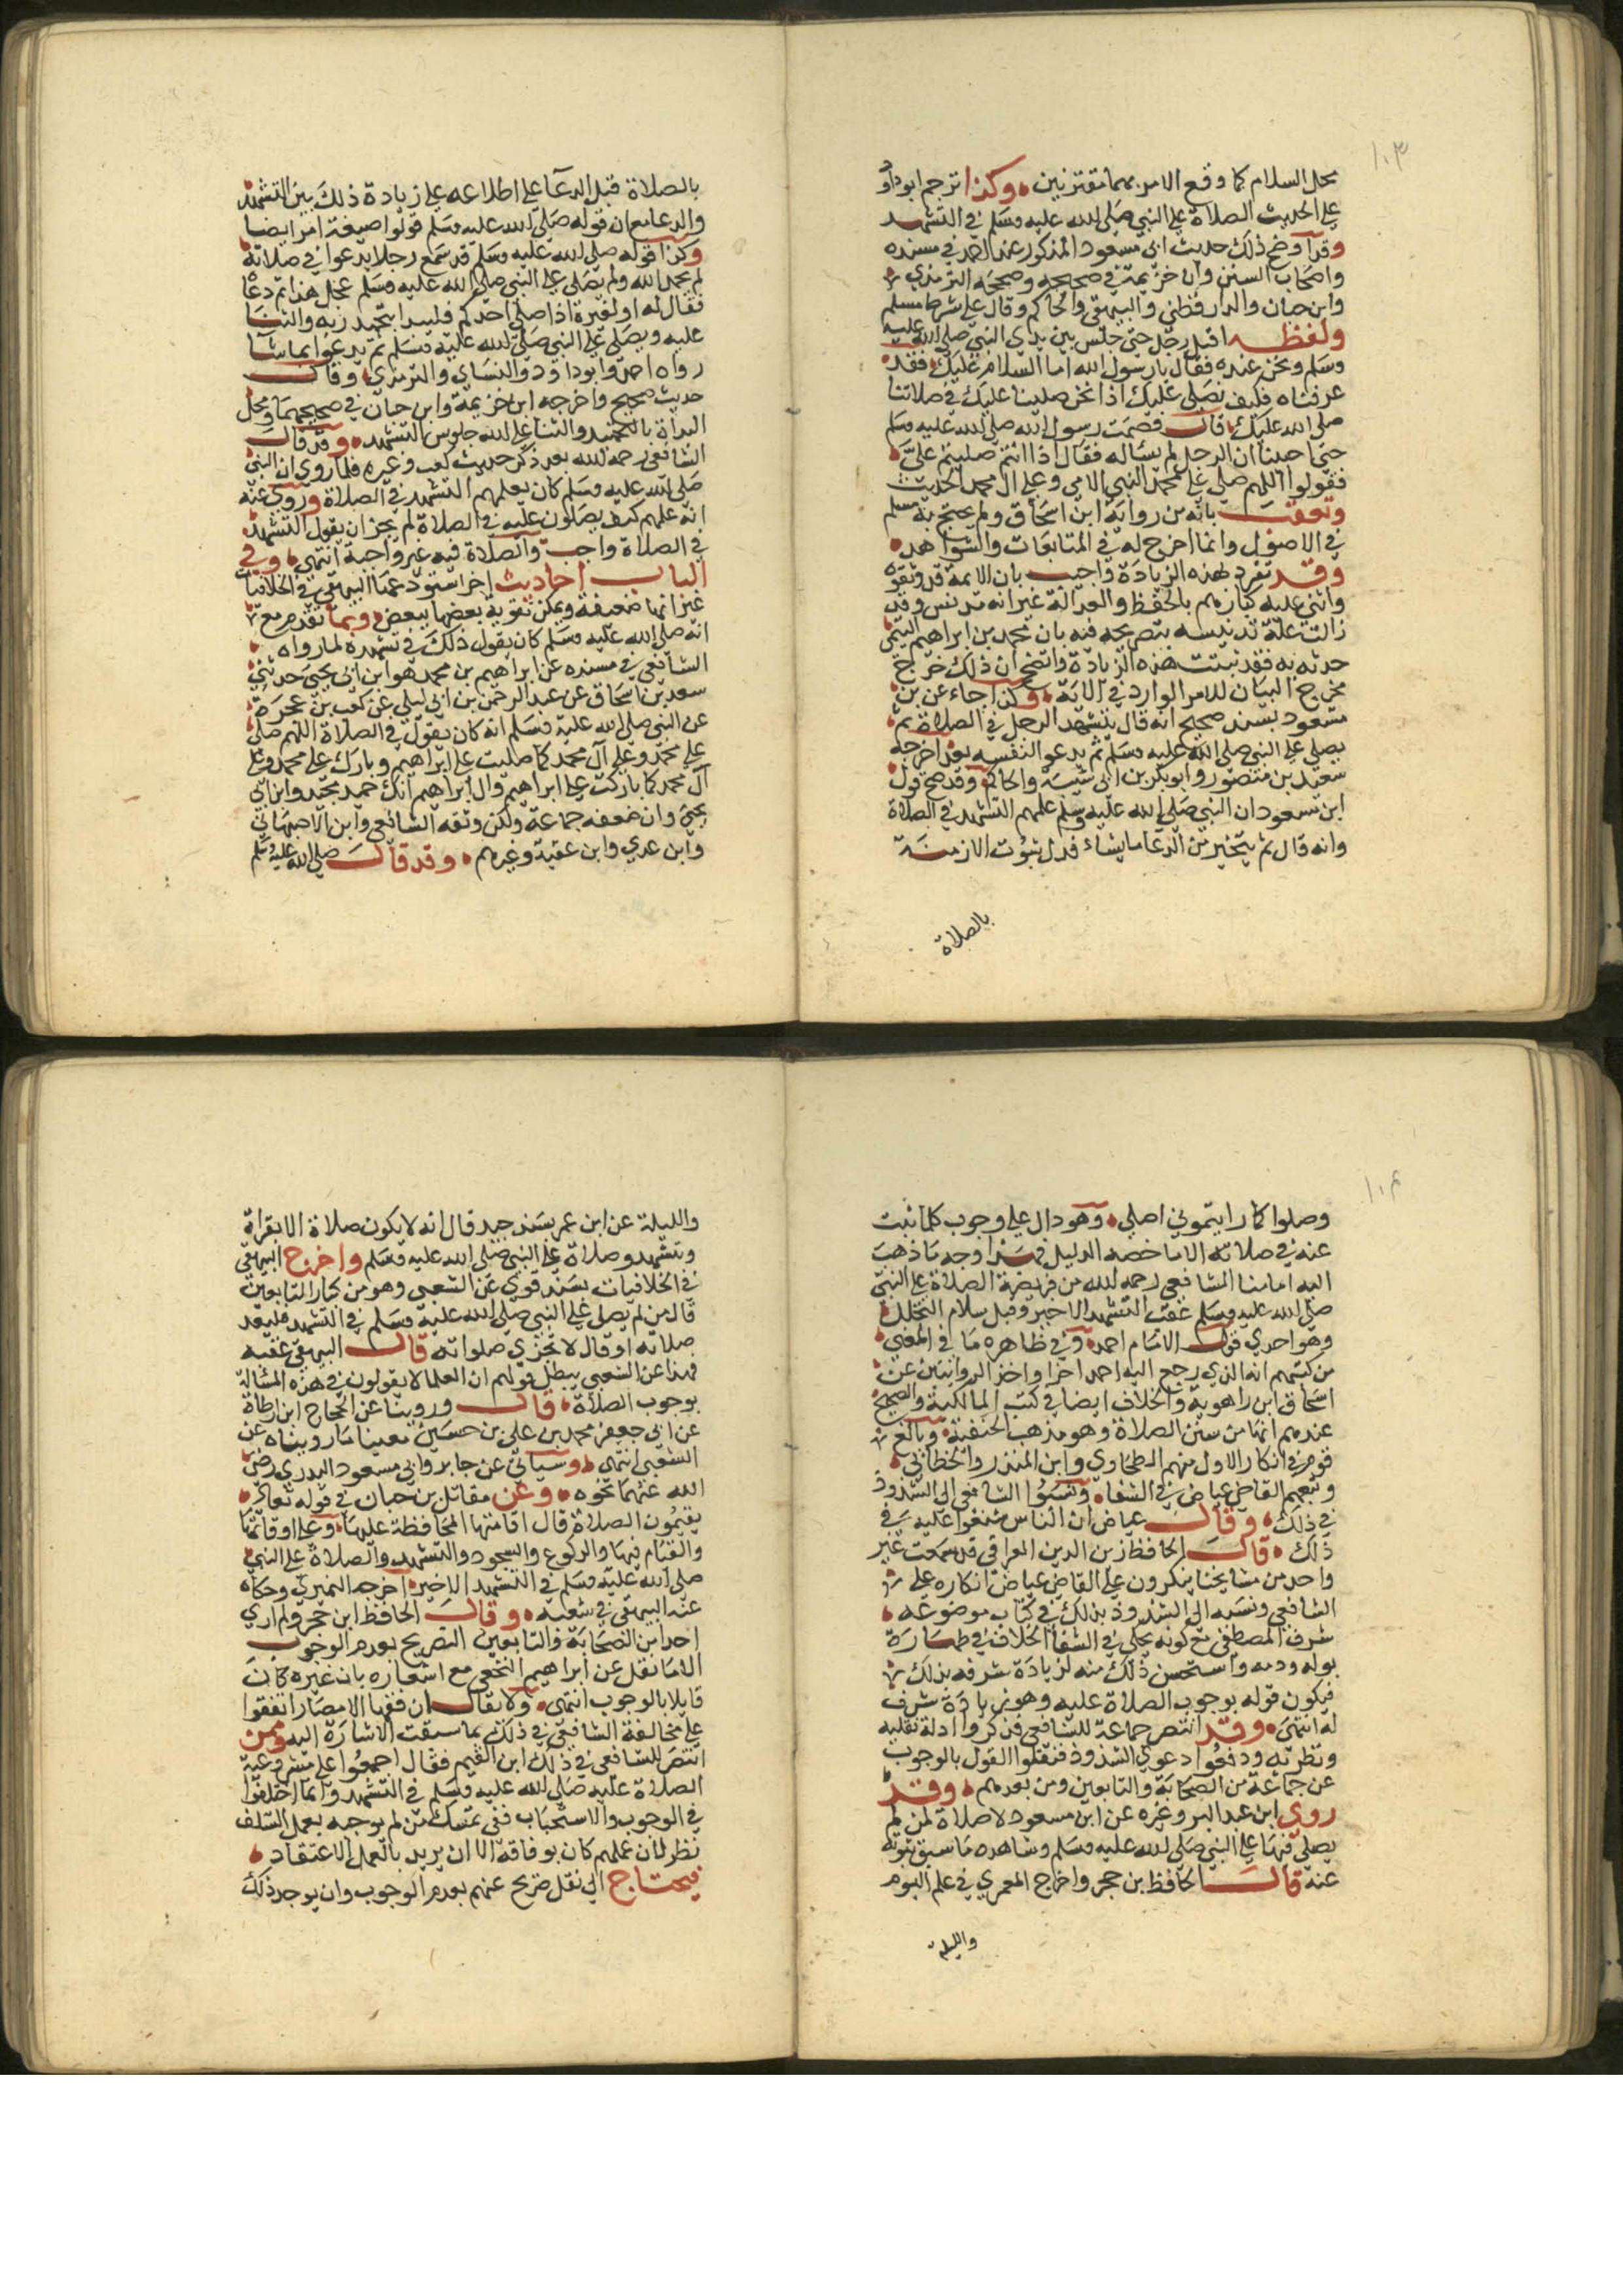 ١٠٣
محل السلام كما وقع الامر بهما مقترنين وكذا ترجم ابوداود
على الحديث الصلاة على النبي صلى الله عليه وسلم في التشهد
وقد اوضح ذلك حديث ابي مسعود المذكور عند احمد في مسنده
واصحاب السنن وابن خزيمة في صحيحه وصححه الترمذي
وابن حبان والدارقطني والبيهقي والحاكم وقال على شرط مسلم
ولفظه اقبل رجل حتى جلس بين يدي النبي صلى الله عليه
وسلم ونحن عنده فقال يا رسول الله اما السلام عليك فقد
عرفناه فكيف نصلي عليك اذا نحن صلينا عليك في صلاتنا
صلى الله عليك قال فصمت رسول الله صلى الله عليه وسلم
حتى احببنا ان الرجل لم يساله فقال اذا انتم صليتم علي
فقولوا اللهم صلي على محمد النبي الامي وعلى ال محمد الحديث
وتعقب بانه من رواية ابن اسحاق ولم يحتج به مسلم
في الاصول وانما اخرج له في المتابعات والشواهد
وقد تفرد بهذه الزيادة واجيب بان الائمة قد وثقوه
واثنى عليه كبارهم بالحفظ والعدالة غير انه مدلس وقد
زالت علة تدليسه بتصريحه فيه بان محمد بن ابراهيم التيمي
حدثه به فقد ثبتت هذه الزيادة واتضح ان ذلك خرج
مخرج البيان للامر الوارد في الاية وكذا جاء عن بن
مسعود بسند صحيح انه قال يتشهد الرجل في الصلاة ثم
يصلي على النبي صلى الله عليه وسلم ثم يدعو لنفسه بعد اخرجه
سعيد بن منصور وابو بكر بن ابي شيبة والحاكم وقد صح قول
ابن مسعود ان النبي صلى الله عليه وسلم علمهم التشهد في الصلاة
وانه قال ثم يتخير من الدعا ما يشاء فدل ثبوت الامر منه
بالصلاة
بالصلاة قبل الدعا على اطلاعه على زيادة ذلك بين التشهد
والدعا مع ان قوله صلى الله عليه وسلم قولوا صيغة امر ايضا
وكذا قوله صلى الله عليه وسلم قد سمع رجلا يدعوا في صلاته
لم يحمد الله ولم يصلي على النبي صلى الله عليه وسلم عجل هذا ثم دعا
فقال له او لغيره اذا صلى احدكم فليبدا بتحميد ربه والثنا
عليه ويصلي على النبي صلى الله عليه وسلم ثم يدعوا بما شا
رواه احمد وابوداود والنساي والترمذي وقال
حديث صحيح واخرجه ابن خزيمة وابن حبان في صحيحيهما ومحل
البداة بالتحميد والثنا على الله جلوس التشهد وقد قال
الشافعي رحمه الله بعد ذكر حديث كعب وغيره فلما روي ان النبي
صلى الله عليه وسلم كان يعلمهم التشهد في الصلاة وروي عنه
انه علمهم كيف يصلون عليه في الصلاة لم يجز ان يقول التشهد
في الصلاة واجب والصلاة فيه غير واجبة انتهى وفي
الباب احاديث اخر استوعبها البيهقي في الخلافيات
غير انها ضعيفة ويمكن تقوية بعضها ببعض وبما تقدم مع
انه صلى الله عليه وسلم كان يقول ذلك في تشهده لما رواه
الشافعي في مسنده عن ابراهيم بن محمد هو ابن ابي يحيى حدثني
سعد بن اسحاق عن عبد الرحمن بن ابي ليلى عن كعب بن عجرة
عن النبي صلى الله عليه وسلم انه كان يقول في الصلاة اللهم صلي
على محمد وعلى آل محمد كما صليت على ابراهيم وبارك على محمد وعلى
آل محمد كما باركت على ابراهيم وال ابراهيم انك حميد مجيد وابن ابي
يحيى وان ضعفه جماعة ولكن وثقه الشافعي وابن الاصبهاني
وابن عدي وابن عقدة وغيرهم وقد قال صلى الله عليه وسلم
١٠٤
وصلوا كما رايتموني اصلي وهو دال على وجوب كلما ثبت
عنه في صلاته الا ما خصه الدليل فهذا وجه ما ذهب
اليه امامنا الشافعي رحمه الله من فريضة الصلاة على النبي
صلى الله عليه وسلم عقب التشهد الاخير وقبل سلام التحلل
وهو احدي قول الامام احمد وفي ظاهره ما في المغني
من كتبهم انه الذي رجع اليه احمد اخرا واخذ الروايتين عن
اسحاق ابن راهوية والخلاف ايضا في كتب المالكية والصحيح
عندهم انها من سنن الصلاة وهو مذهب الحنفية وبالغ
قوم في انكار الاول منهم الطحاوي وابن المنذر والخطابي
وتبعهم القاضي عياض في الشفا ونسبوا الشافعي الى الشذوذ
في ذلك وقال عياض ان الناس شنعوا عليه في
ذلك قال الحافظ زين الدين العراقي قد سمعت غير
واحد من مشايخنا ينكرون على القاضي عياض انكاره على
الشافعي ونسبه الى الشذوذ بذلك في كتاب موضوعه
شرف المصطفى مع كونه يحكي في الشفا الخلاف في طهارة
بوله ودمه واستحسن ذلك منه لزيادة شرفه بذلك
فيكون قوله بوجوب الصلاة عليه وهو زيادة شرف
له انتهى وقد انتصر جماعة للشافعي فذكروا ادلة نقلية
ونظرية ودفعوا دعوي الشذوذ فنقلوا القول بالوجوب
عن جماعة من الصحابة والتابعين ومن بعدهم وقد
روي ابن عبد البر وغيره عن ابن مسعود لا صلاة لمن لم
يصلي فيها على النبي صلى الله عليه وسلم وشاهده ما سبق ثبوته
عنه قال الحافظ بن حجر واخرج المعمري في علم اليوم
والليلة
والليلة عن ابن عمر بسند جيد قال انه لا يكون صلاة الا بقراة
وبتشهد وصلاة على النبي صلى الله عليه وسلم واخرج البيهقي
في الخلافيات بسند قوي عن الشعبي وهو من كبار التابعين
قال من لم يصلي على النبي صلى الله عليه وسلم في التشهد فليعد
صلاته او قال لا تجزي صلواته قال البيهقي عقبه
فهذا عن الشعبي يبطل قولهم ان العلما لا يقولون في هذه المسالة
بوجوب الصلاة قال وروينا عن الحجاج ابن ارطاة
عن ابي جعفر محمد بن علي بن حسين معينا ما رويناه عن
الشعبي انتهى وسياتي عن جابر وابي مسعود البدري رضي
الله عنهما نحوه وعن مقاتل بن حبان في قوله تعالى
يقيمون الصلاة قال اقامتها المحافظة عليها وعلى اوقاتها
والقيام فيها والركوع والسجود والتشهد والصلاة على النبي
صلى الله عليه وسلم في التشهد الاخير اخرجه النميري وحكاه
عنه البيهقي في شعبه وقال الحافظ ابن حجر ولم اري
احدا من الصحابة والتابعين التصريح بعدم الوجوب
الا ما نقل عن ابراهيم النخعي مع اشعاره بان غيره كان
قايلا بالوجوب انتهى ولا يقال ان فقها الامصار اتفقوا
على مخالفة الشافعي في ذلك بما سبقت الاشارة اليه وممن
انتصر للشافعي في ذلك ابن القيم فقال اجمعوا على مشروعية
الصلاة عليه صلى الله عليه وسلم في التشهد وانما اختلفوا
في الوجوب والاستحباب ففي تمسك من لم يوجبه بعمل السلف
نظر لان عملهم كان بوفاقه الا ان يريد بالعمل الاعتقاد
فيحتاج الى نقل صريح عنهم بعدم الوجوب وان يوجد ذلك